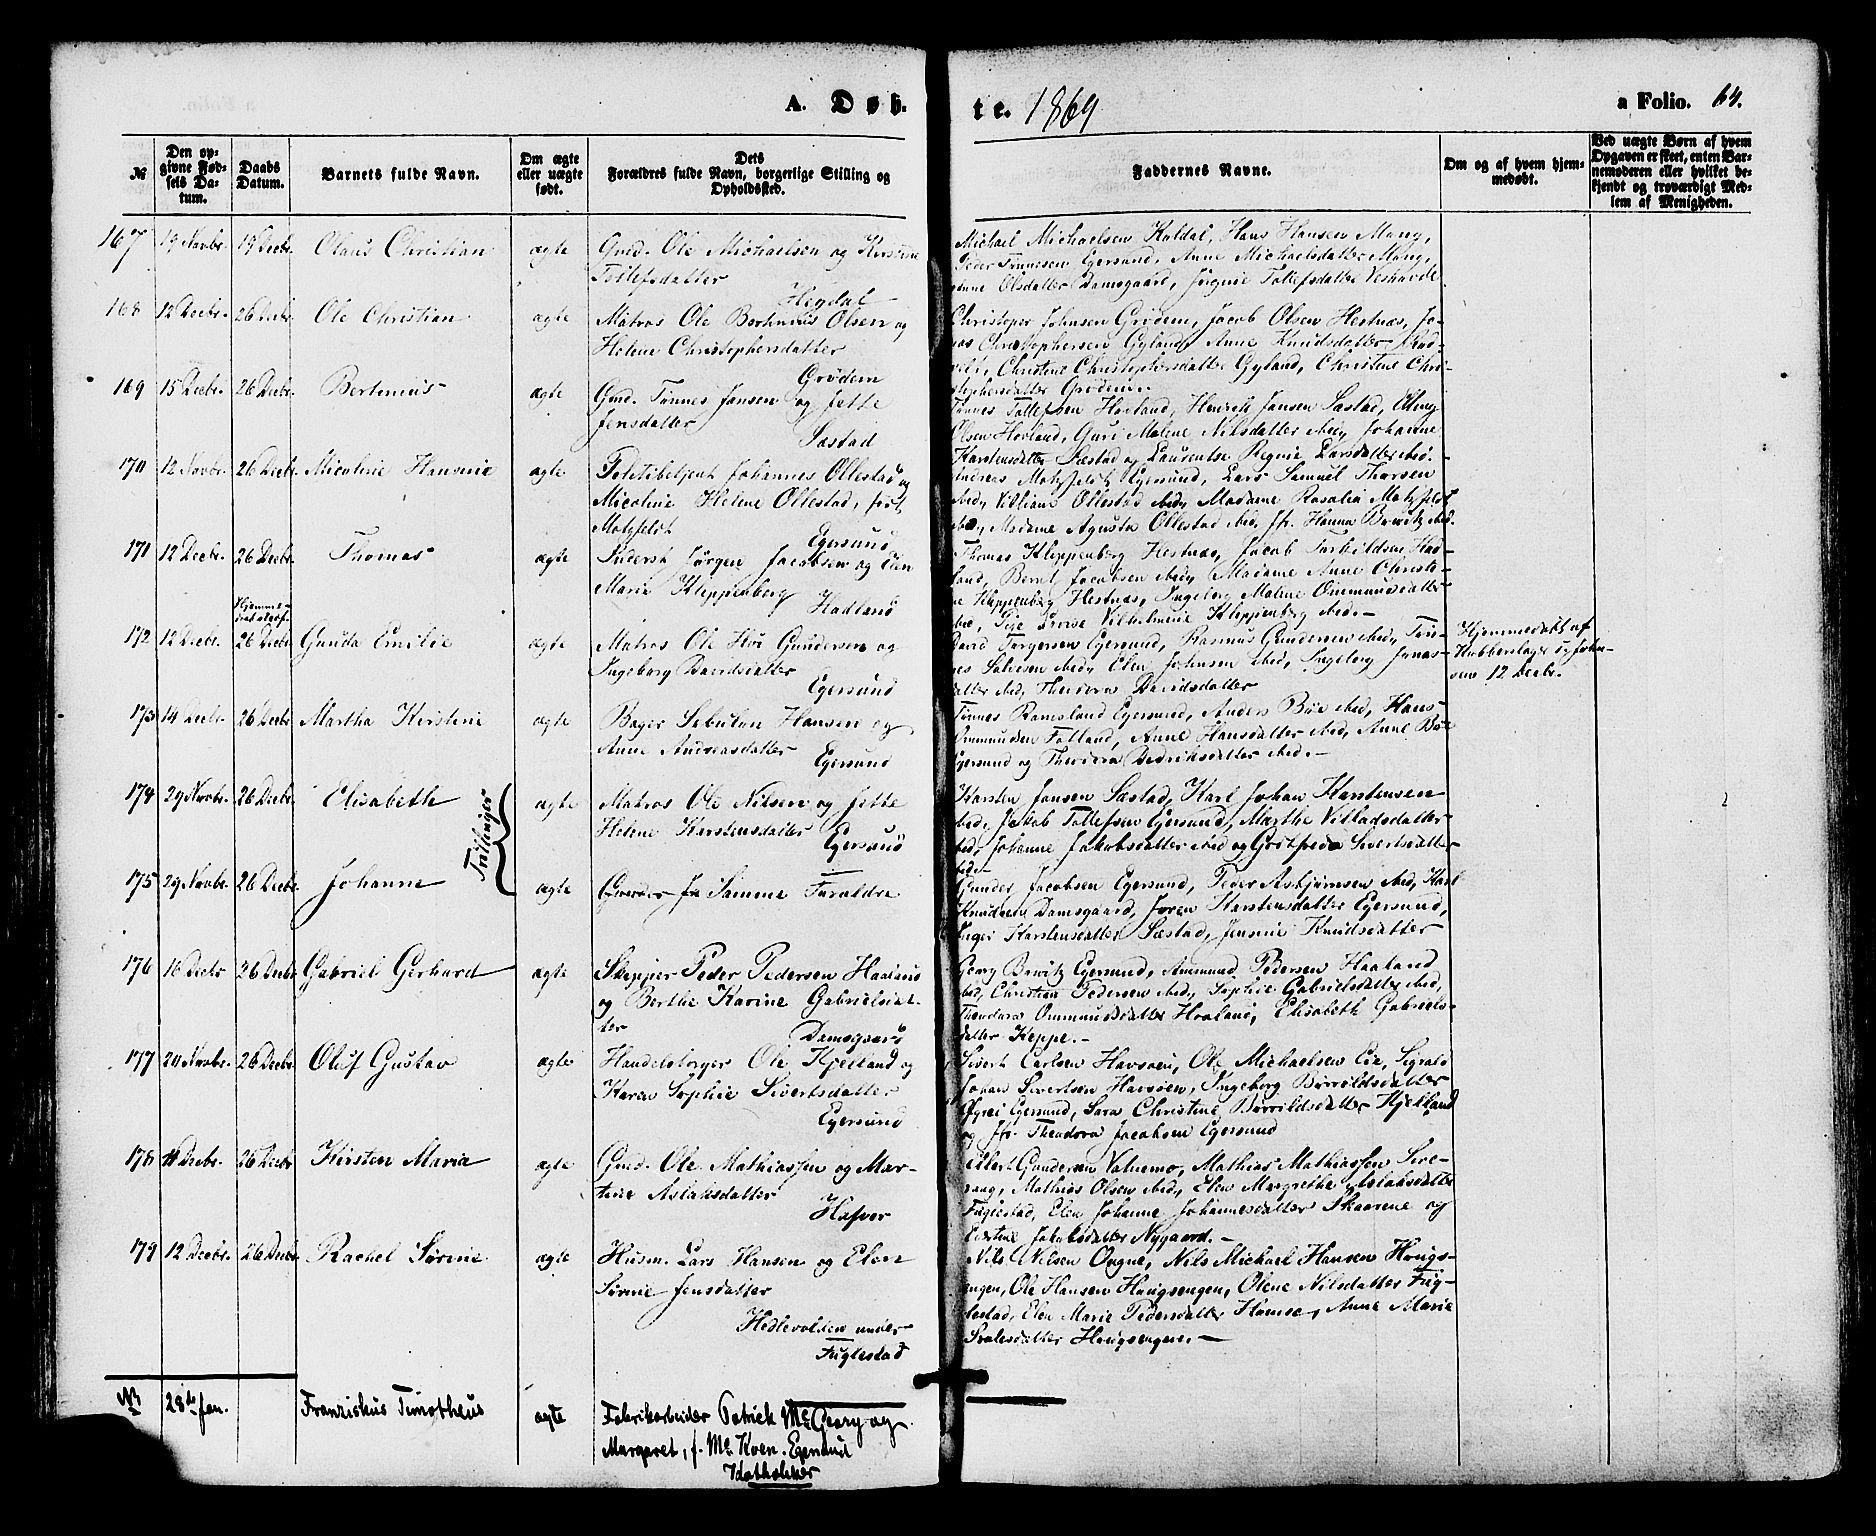 A. Døb.
te. 1869
a Folio. 64.
№
Den op-
givne Fød-
sels Da-
tum.
Daabs
Datum.
Barnets fulde Navn.
Om ægte
eller uægte
født.
Dets
Forældres fulde Navn, borgerlige Stilling og
Opholdssted.
Faddernes Navne.
Om og af hvem hjem-
medøbt.
Ved uægte Børn af hvem
Opgaven er skeet, enten Bar-
nemoderen eller hvilket be-
kjendt og troværdigt Med-
lem af Menigheden.
167 19 Novbr. 19 Decbr. Olaus Christian ægte Gmd. Ole Michaelsen og Kirstine
Tollefsdatter
Hegdal
Michael Michaelsen Kaldal, Hans Hansen Mong,
Peder Tønnesen Egersund, Anne Michaelsdatter Mong,
Anne Olsdatter Damsgaard, Jørgine Tollefsdatter
168 12 Decbr. 26 Decbr. Ole Christian ægte Matros Ole Bertinius Olsen og
Helene Christophersdatter
Grødem
Christopher Johnsen Grødem, Jacob Olsen Hestnes, Jo-
nas Christophersen Gyland, Anne Knudsdatter
Christine Christophersdatter Gyland, Christine Chri-
stophersdatter Grødem.
169 15 Decbr. 26 Decbr. Bertinius ægte Gmd. Tønnes Jansen og Jette
Jensdatter
Sæstad
Tønnes Tollefsen Hovland, Henrik Jansen Sæstad, Elling
Olsen Hovland, Guri Malene Nilsdatter ibed, Johanne
Karstensdatter Sæstad og Laurentse Regine Larsdatter ibed.
170 12 Novbr. 26 Decbr. Micoline Hansine ægte Politibetjent Johannes Ollestad og
Micoline Helene Ollestad, født
Motzfeldt
Egersund
Andreas Motzfeldt Egersund, Lars Samuel Thorsen
ibed, Villiam Ollestad ibed, Madame Rosalia Motzfeldt
ibed, Madame Agusta Ollestad ibed, Fr. Hanna ibed.
171 12 Decbr. 26 Decbr. Thomas ægte Inderst Jørgen Jacobsen og Elen
Marie Kleppenberg
Hadland
Thomas Kleppenberg Hestnes, Jacob Torkildsen Had-
land, Bernt Jacobsen ibed, Madame Anne Christi-
ne Kleppenberg Hestnes, Ingeborg Malene Ommundsdatter
ibed, Pige Lovise Vilhelmine Kleppenberg ibed.
Hjemme-
172 12 Decbr. 26 Decbr. Gunda Emilie ægte Matros Ole Høi Gundersen og
Ingeborg Davidsdatter
Egersund
David Torgersen Egersund, Rasmus Gundersen ibed, Tøn-
nes Salvesen ibed, Elen Johnsen ibed, Ingeborg Jonas-
datter ibed, Theodora Davidsdatter
Hjemmedøbt af
Klubberslager og John-
sen 12 Decbr.
173 14 Decbr. 26 Decbr. Martha Kirstine ægte Bager Sebulon Hansen og
Anne Andreasdatter
Egersund
Tønnes Ramsland Egersund, Anders Bøe ibed, Hans
Ommundsen Fotland, Anne Hansdatter ibed, Anne Bøe
Egersund og Theodora Didriksdatter ibed.
174 29 Novbr. 26 Decbr. Elisabeth ægte Matros Ole Nilsen og Jette
Helene Karstensdatter
Egersund
Tvillinger
Karsten Jansen Sæstad, Karl Johan Karstensen
ibed, Jakob Tollefsen Egersund, Marthe Villadsdatter
ibed, Johanne Jakobsdatter ibed og Gotfreda Sivertsdatter
ibed.
175 29 Novbr. 26 Decbr. Johanne ægte Samme Forældre
Gunder Jacobsen Egersund, Peder Asbjørnsen ibed, Karl
Knudsen Damsgaard, Joren Karstensdatter Egersund,
Inger Karstensdatter Sæstad, Jensine Knudsdatter
176 16 Decbr 26 Decbr Gabriel Gerhard ægte Skipper Peder Pedersen Haaland
og Berthe Karine Gabrielsdat-
ter
Damsgaard
Georg Egersund, Ammund Pedersen Haaland
ibed, Christian Pedersen ibed, Sophie Gabrielsdatter ibed,
Theodora Ommundsdatter Hovland, Elisabeth Gabriels-
datter Keppe.
177 24 Novbr. 26 Decbr. Oluf Gustav ægte Handelsborger Ole Kjelland og
Karen Sophie Sivertsdatter
Egersund
Sivert Carlsen Havsøen, Ole Michaelsen Eie, Sigvald
Johan Sivertsen Havsøen, Ingeborg Børrildsdatter
Øgrei Egersund, Sara Christine Børrildsdatter Kjelland
og Fr. Theodora Jacobsen Egersund
178 11 Decbr. 26 Decbr Kirsten Maria ægte Gmd. Ole Mathiassen og Mar-
tine Aslaksdatter
Hafsøe
Ellert Gundersen Vatnemo, Mathias Mathiassen Sire-
vaag, Mathias Olsen ibed, Elen Margrethe Aslaksdatter
Fuglestad, Elen Johanne Johannesdatter Skaarene og
Jakobsdatter Nygaard.
179 12 Decbr. 26 Decbr. Rachel Sørine ægte Husm. Lars Hansen og Elen
Sørine Jensdatter
Hedlevolden under
Fuglestad
Nils Nilsen Ongne, Nils Michael Hansen Hougs-
engen, Ole Hansen Hougsengen, Olene Nilsdatter Fug-
lestad, Elen Marie Pedersdatter Homse, Anne Marie
Hougsengen.
N. 28de Jan. Franziskus Timotheus ægte Fabrikarbeider Patrick McGeary og
Margaret, f. Mc Koen. Egersund
Katholiker